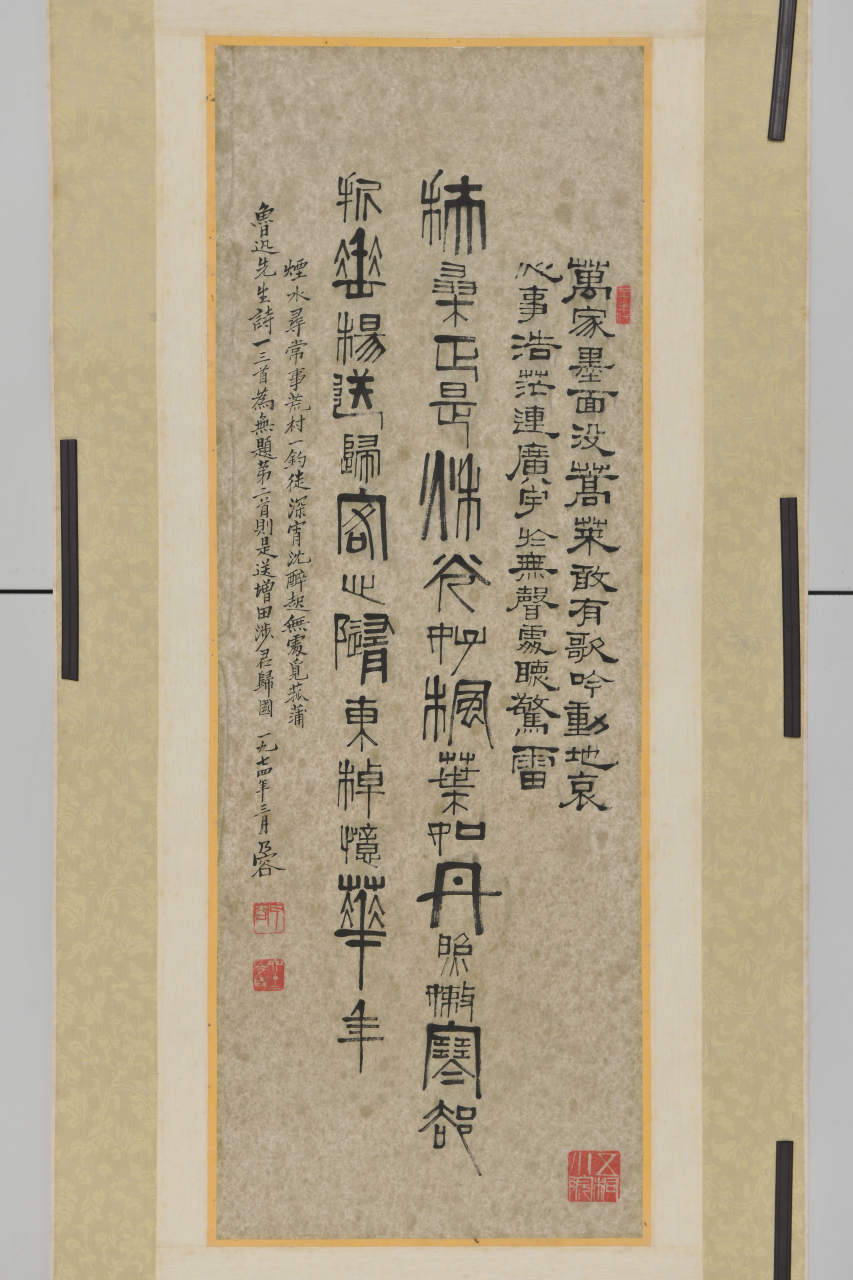 萬家墨面没蒿萊敢有歌吟動地哀
心事浩茫連廣宇於無聲處聽驚雷
扶桑正是秋光好楓葉如丹照嫩寒卻
折垂楊送歸客心隨東棹憶華年
煙水尋常事荒村一釣徒深宵沈醉起無處覓菰蒲
魯迅先生詩一三首為無題第二首則是送增田涉君歸國 一九七四年三月 乃容